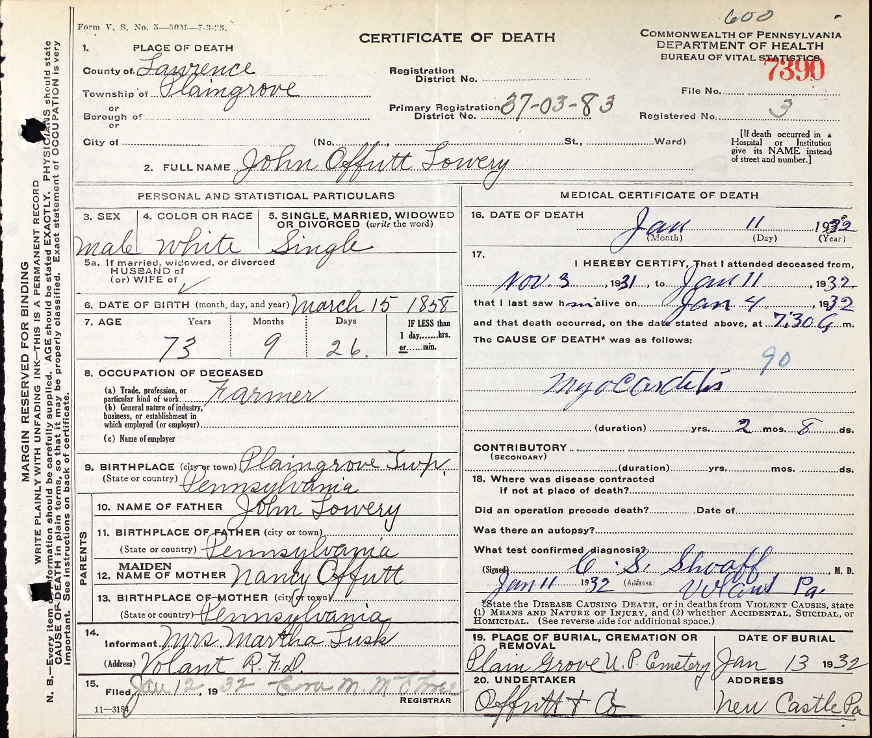 600
Form V. S. No. 5—50M—7-3-25.
CERTIFICATE OF DEATH
COMMONWEALTH OF PENNSYLVANIA
DEPARTMENT OF HEALTH
BUREAU OF VITAL STATISTICS
7390
1. PLACE OF DEATH
County of Lawrence
Township of Plaingrove
or
Borough of
or
City of
Registration
District No.
Primary Registration
District No. 37-03-83
File No.
Registered No. 3
(No. St., Ward)
[If death occurred in a
Hospital or Institution
give its NAME instead
of street and number.]
2. FULL NAME John Offutt Lowery
PERSONAL AND STATISTICAL PARTICULARS
3. SEX
male
4. COLOR OR RACE
White
5. SINGLE, MARRIED, WIDOWED
OR DIVORCED (write the word)
Single
5a. If married, widowed, or divorced
HUSBAND of
(or) WIFE of
6. DATE OF BIRTH (month, day, and year) March 15 1858
7. AGE Years Months Days
73 9 26.
IF LESS than
1 day,......hrs.
or......min.
8. OCCUPATION OF DECEASED
(a) Trade, profession, or
particular kind of work Farmer
(b) General nature of industry,
business, or establishment in
which employed (or employer)
(c) Name of employer
9. BIRTHPLACE (city or town) Plaingrove Twp.
(State or country) Pennsylvania
PARENTS
10. NAME OF FATHER John Lowery
11. BIRTHPLACE OF FATHER (city or town)
(State or country) Pennsylvania
12. MAIDEN NAME OF MOTHER Nancy Offutt
13. BIRTHPLACE OF MOTHER (city or town)
(State or country) Pennsylvania
14.
Informant Mrs. Martha Lusk
(Address) Volant R.F.D.
15.
Filed Jan 12, 1932 Eva M.
REGISTRAR
11-3184
MEDICAL CERTIFICATE OF DEATH
16. DATE OF DEATH
Jan 11 1932
(Month) (Day) (Year)
17.
I HEREBY CERTIFY, That I attended deceased from,
Nov. 3, 1931, to Jan 11, 1932
that I last saw him alive on Jan 4, 1932
and that death occurred, on the date stated above, at 7:30 a m.
The CAUSE OF DEATH* was as follows:
90
Myocarditis
(duration) yrs. 2 mos. 8 ds.
CONTRIBUTORY
(SECONDARY)
(duration) yrs. mos. ds.
18. Where was disease contracted
if not at place of death?
Did an operation precede death? Date of
Was there an autopsy?
What test confirmed diagnosis?
(Signed) C. S. Shoaff M. D.
Jan 11 1932 (Address) Volant Pa.
*State the DISEASE CAUSING DEATH, or in deaths from VIOLENT CAUSES, state
(1) MEANS AND NATURE OF INJURY, and (2) whether ACCIDENTAL, SUICIDAL, or
HOMICIDAL. (See reverse side for additional space.)
19. PLACE OF BURIAL, CREMATION OR
REMOVAL
Plain Grove U.P. Cemetery
DATE OF BURIAL
Jan 13 1932
20. UNDERTAKER
Offutt & Co
ADDRESS
New Castle Pa
MARGIN RESERVED FOR BINDING
WRITE PLAINLY WITH UNFADING INK—THIS IS A PERMANENT RECORD
N. B.—Every item of information should be carefully supplied. AGE should be stated EXACTLY. PHYSICIANS should state
CAUSE OF DEATH in plain terms, so that it may be properly classified. Exact statement of OCCUPATION is very
important. See instructions on back of certificate.